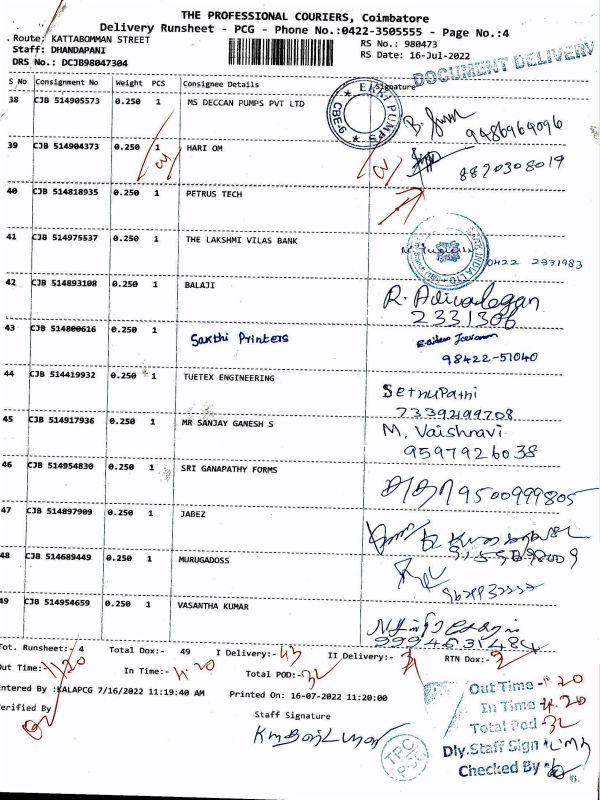 THE PROFESSIONAL COURIERS, Coimbatore
Delivery Runsheet - PCG - Phone No.:0422-3505555 - Page No.:4
Route: KATTABOMMAN STREET
RS No.: 980473
Staff: DHANDAPANI
RS Date: 16-Jul-2022
DRS No.: DCJB98047304
DOCUMENT DELIVERY
S No Consignment No Weight PCS Consignee Details Signature
38 CJB 514905573 0.250 1 MS DECCAN PUMPS PVT LTD
PUMPS CBE-9
9486964096
39 CJB 514904373 0.250 1 HARI OM
8870308019
40 CJB 514818935 0.250 1 PETRUS TECH
41 CJB 514975537 0.250 1 THE LAKSHMI VILAS BANK
0422 2331983
42 CJB 514893108 0.250 1 BALAJI
2331306
43 CJB 514800616 0.250 1 Sakthi Printers
98422-51040
44 CJB 514419932 0.250 1 TUETEX ENGINEERING
Sethupathi
45 CJB 514917936 0.250 1 MR SANJAY GANESH S
M. Vaishnavi
9597926038
46 CJB 514954830 0.250 1 SRI GANAPATHY FORMS
9500999805
47 CJB 514897909 0.250 1 JABEZ
48 CJB 514689449 0.250 1 MURUGADOSS
49 CJB 514954659 0.250 1 VASANTHA KUMAR
Tot. Runsheet:- 4 Total Dox:- 49 I Delivery:- 43 II Delivery:- RTN Dox:-
Out Time:- 11.20 In Time:- 4.20 Total POD:- 32
Entered By :KALAPCG 7/16/2022 11:19:40 AM Printed On: 16-07-2022 11:20:00
Verified By
Staff Signature
Out Time - 20
In Time - 4.20
Total Pod - 32
Dly.Staff Sign
Checked By
TPC